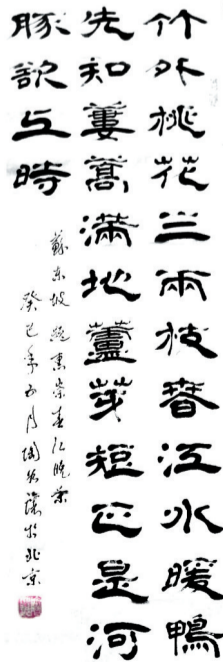 竹外桃花三兩枝春江水暖鴨
先知蔞蒿滿地蘆芽短正是河
豚欲上時
蘇东坡題惠崇春江晚景
癸巳年五月於北京